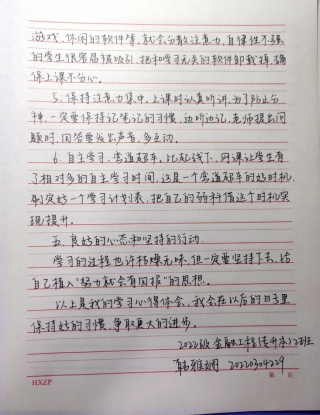 游戏，休闲的软件等，就会分散注意力，自律性不强
的学生很容易被吸引，把和学习无关的软件卸载掉，确
保上课不分心。
5. 保持注意力集中，上课时认真听讲，为了防止分
神，一定要保持记笔记的习惯，边听边记，老师提出问
题时，回答要发出声音，多互动。
6. 自主学习，弯道超车，比起线下，网课让学生有
了相对多的自主学习时间，这是一个弯道超车的好时机，
制定好一个学习计划表，把自己的弱科借这个时机实
现提升。
五. 良好的心态和坚持的行动
学习的过程也许枯燥无味，但一定要坚持下去，给
自己植入"努力就会有回报"的思想。
以上是我的学习心得体会，我会在以后的日子里
保持好的习惯，争取更大的进步。
2022级金融工程(专升本)2班
韩雅娴 20220304229
HXZP 第 页